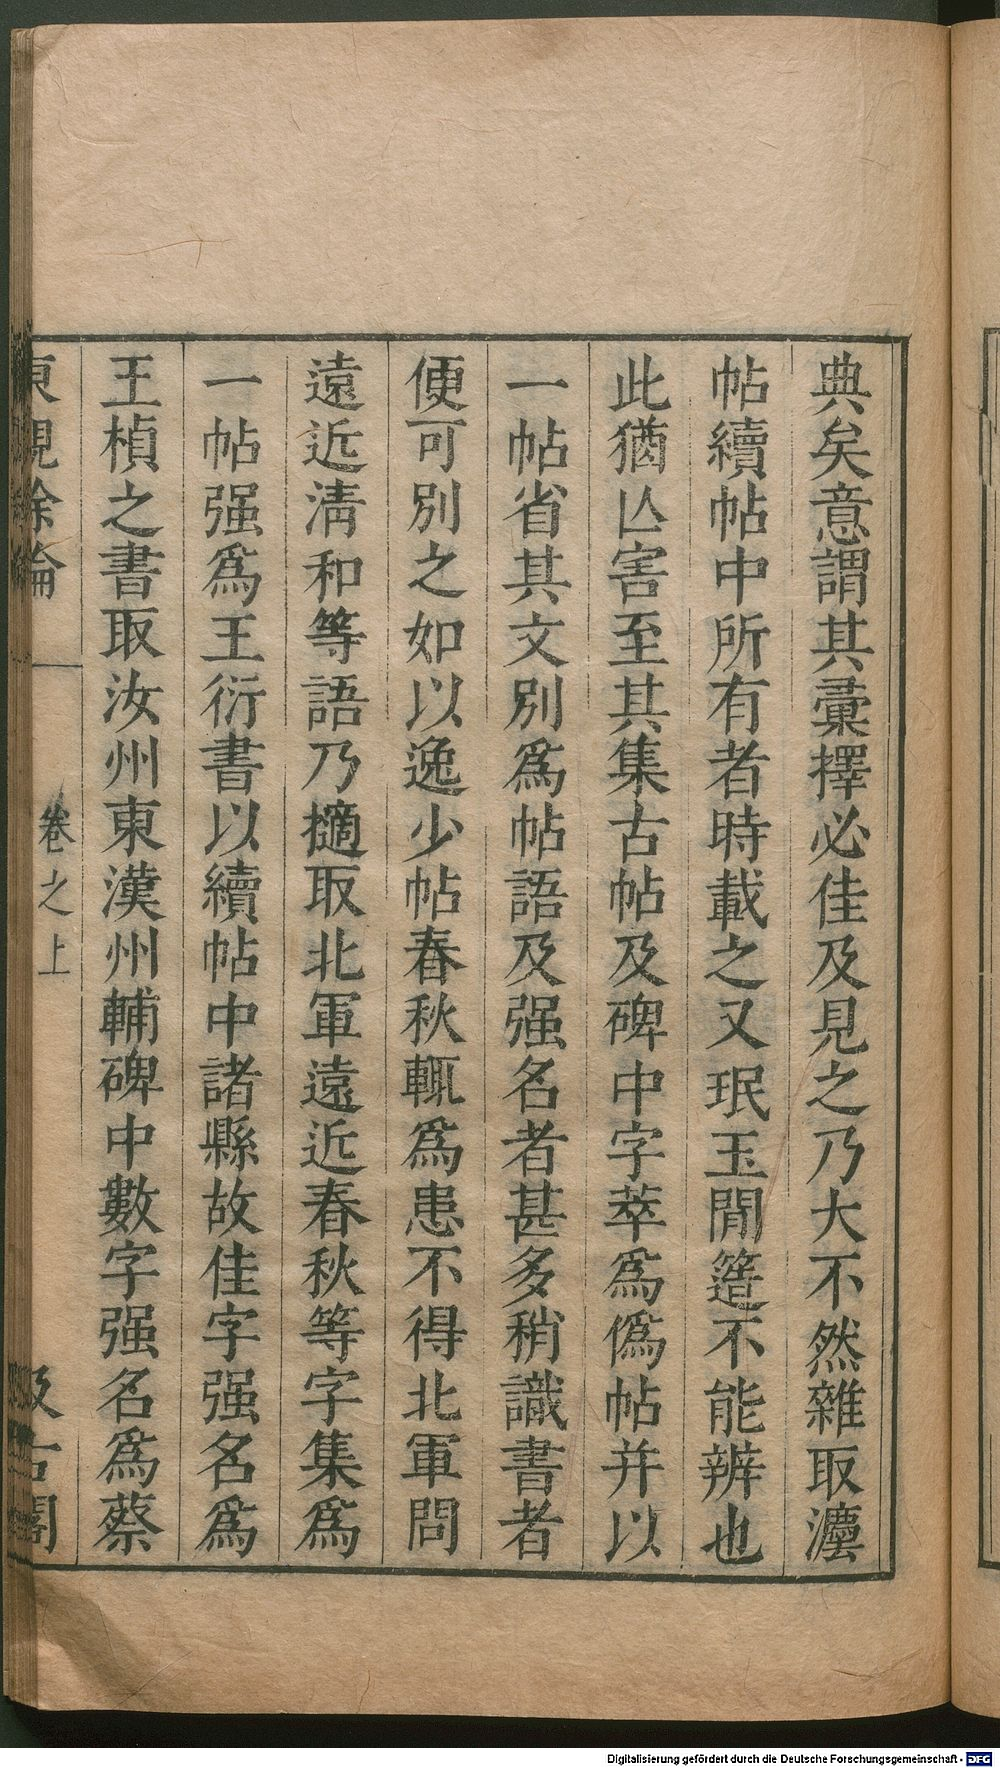 典矣意謂其彙擇必佳及見之乃大不然雜取灋
帖續帖中所有者時載之又珉玉閒簉不能辨也
此猶亾害至其集古帖及碑中字萃爲僞帖并以
一帖省其文別爲帖語及强名者甚多稍識書者
便可別之如以逸少帖春秋輒爲患不得北軍問
遠近清和等語乃擿取北軍遠近春秋等字集爲
一帖强爲王衍書以續帖中諸縣故佳字强名爲
王楨之書取汝州東漢州輔碑中數字强名爲蔡
東觀餘論 卷之上 汲古閣
Digitalisierung gefördert durch die Deutsche Forschungsgemeinschaft - DFG